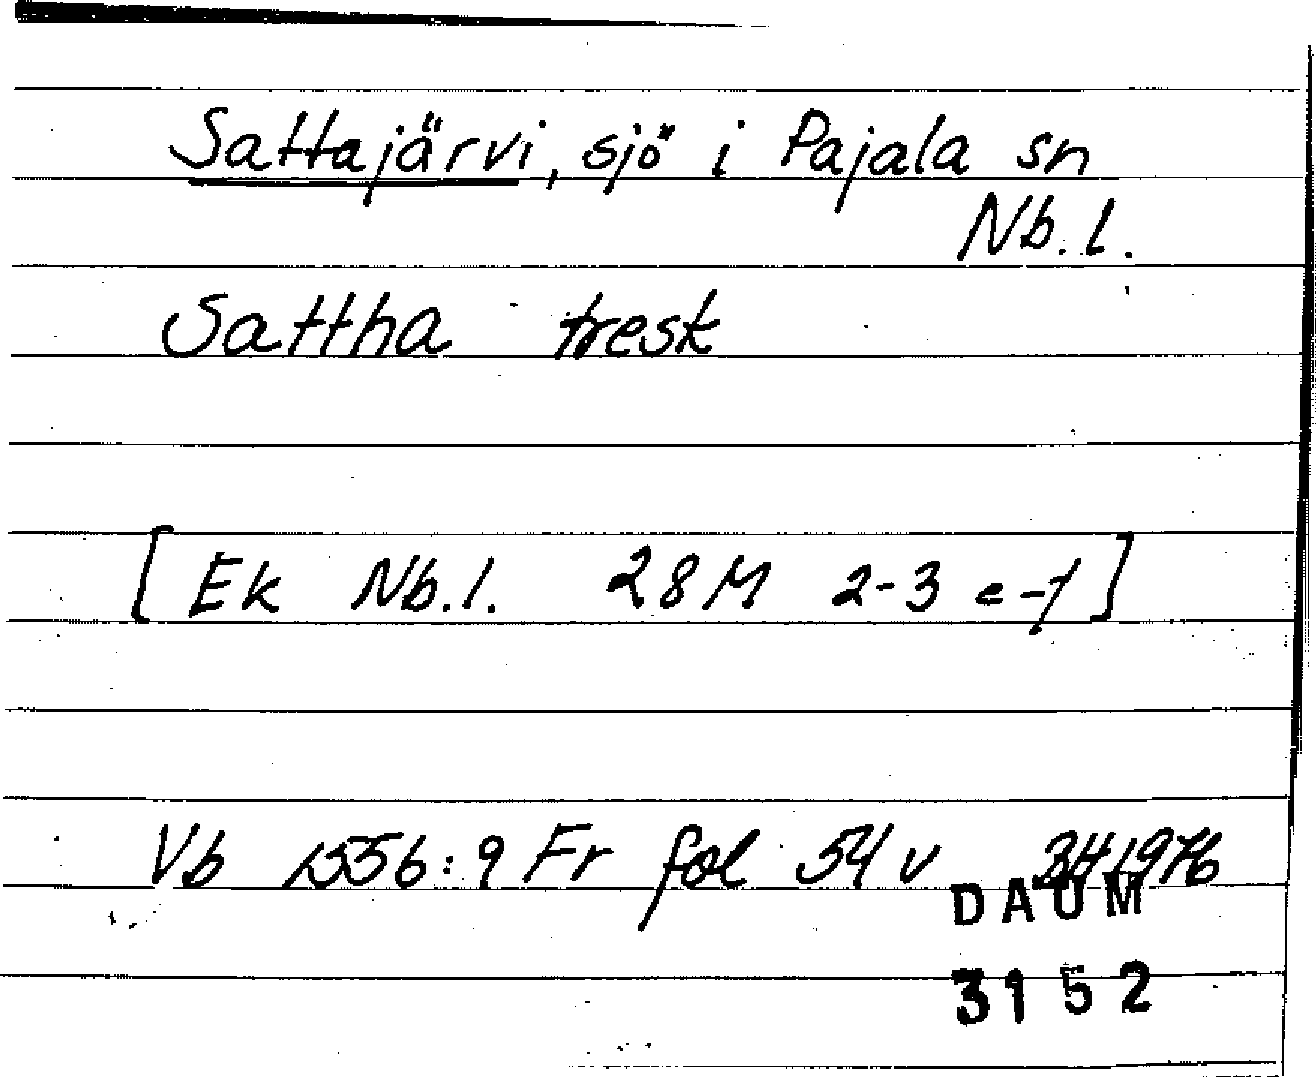 Sattajärvi, sjö i Pajala sn
Nb.l.
Sattha tresk
[Ek Nb.l. 28M 2-3 e-f]
Vb 1556:9 Fr fol 54 v 1976
DAUM
3152